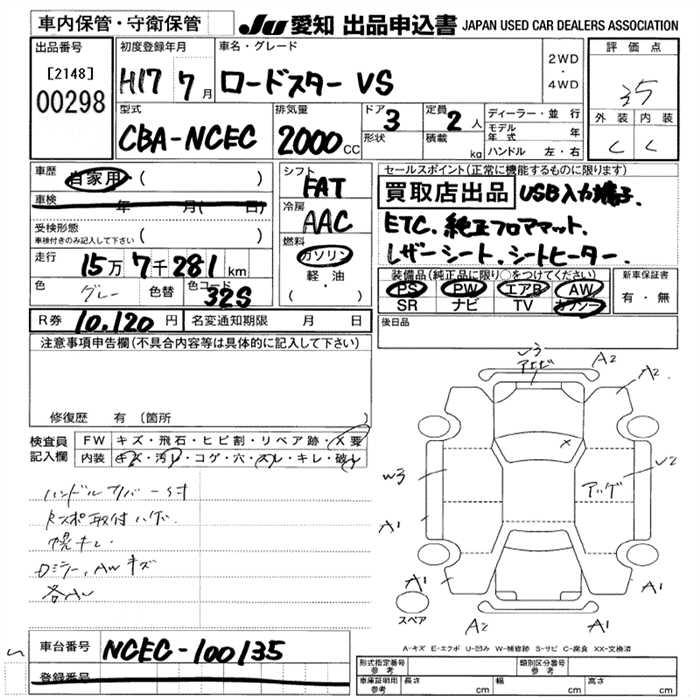 車内保管・守衛保管
JU 愛知 出品申込書 JAPAN USED CAR DEALERS ASSOCIATION
出品番号
[2148]
00298
初度登録年月
H17 7月
車名・グレード
ロードスター VS
2WD
・
4WD
評価点
3.5
外装 内装
C C
型式
CBA-NCEC
排気量
2000 CC
ドア 3
形状
定員 2 人
積載 kg
ディーラー・並行
モデル年式 年
ハンドル 左・右
車歴 自家用 ( )
車検 年 月( 日)
受検形態
車検付きのみ記入して下さい ( )
走行 15万7千281km
色 グレー 色替 色コード 32S
シフト
FAT
冷房
AAC
燃料
ガソリン
軽・油
( ・ )
セールスポイント(正常に機能するものに限ります)
買取店出品 USB入力端子.
ETC. 純正フロアマット.
レザーシート. シートヒーター.
装備品(純正品に限り○をつけてください)
PS PW エアB AW
SR ナビ TV カワシート
新車保証書
有・無
後日品
R券 10,120 円 名変通知期限 月 日
注意事項申告欄(不具合内容等は具体的に記入して下さい)
修復歴 有(箇所 )
検査員記入欄
FW キズ・飛石・ヒビ割・リペア跡・X要
内装 キズ・汚レ・コゲ・穴・スレ・キレ・破レ
ハンドルカバースレ
幌キレ
ロミラー,AWキズ
各AU
車台番号 NCEC-100135
登録番号
U3
アゲ
A2
A2
W3
A1
U2
アッゲ
A1
A1
A1
スペア
A-キズ E-エクボ U-凹み W-補修跡 S-サビ C-腐食 XX-交換済
形式指定番号
参考
類別区分番号
参考
車庫証明用
参考
長さ cm 幅 cm 高さ cm